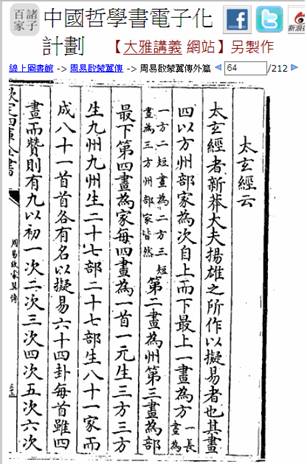 諸子
百家
中國哲學書電子化
計劃
【大雅講義 網站】另製作
線上圖書館 -> 周易啟蒙翼傳 -> 周易啟蒙翼傳外篇
64 /212
太玄經云
太玄經者新莽大夫揚雄之所作以擬易者也其畫
四以方州部家為次自上而下最上一畫為方一長畫為
一方二短畫為二方三短畫為三方州部家皆然第二畫為州第三畫為部
最下第四畫為家每四畫為一首一元生三方三方
生九州九州生二十七部二十七部生八十一家而
成八十一首首各有名以擬易六十四卦每首雖四
畫而贊則有九以初一次二次三次四次五次六次